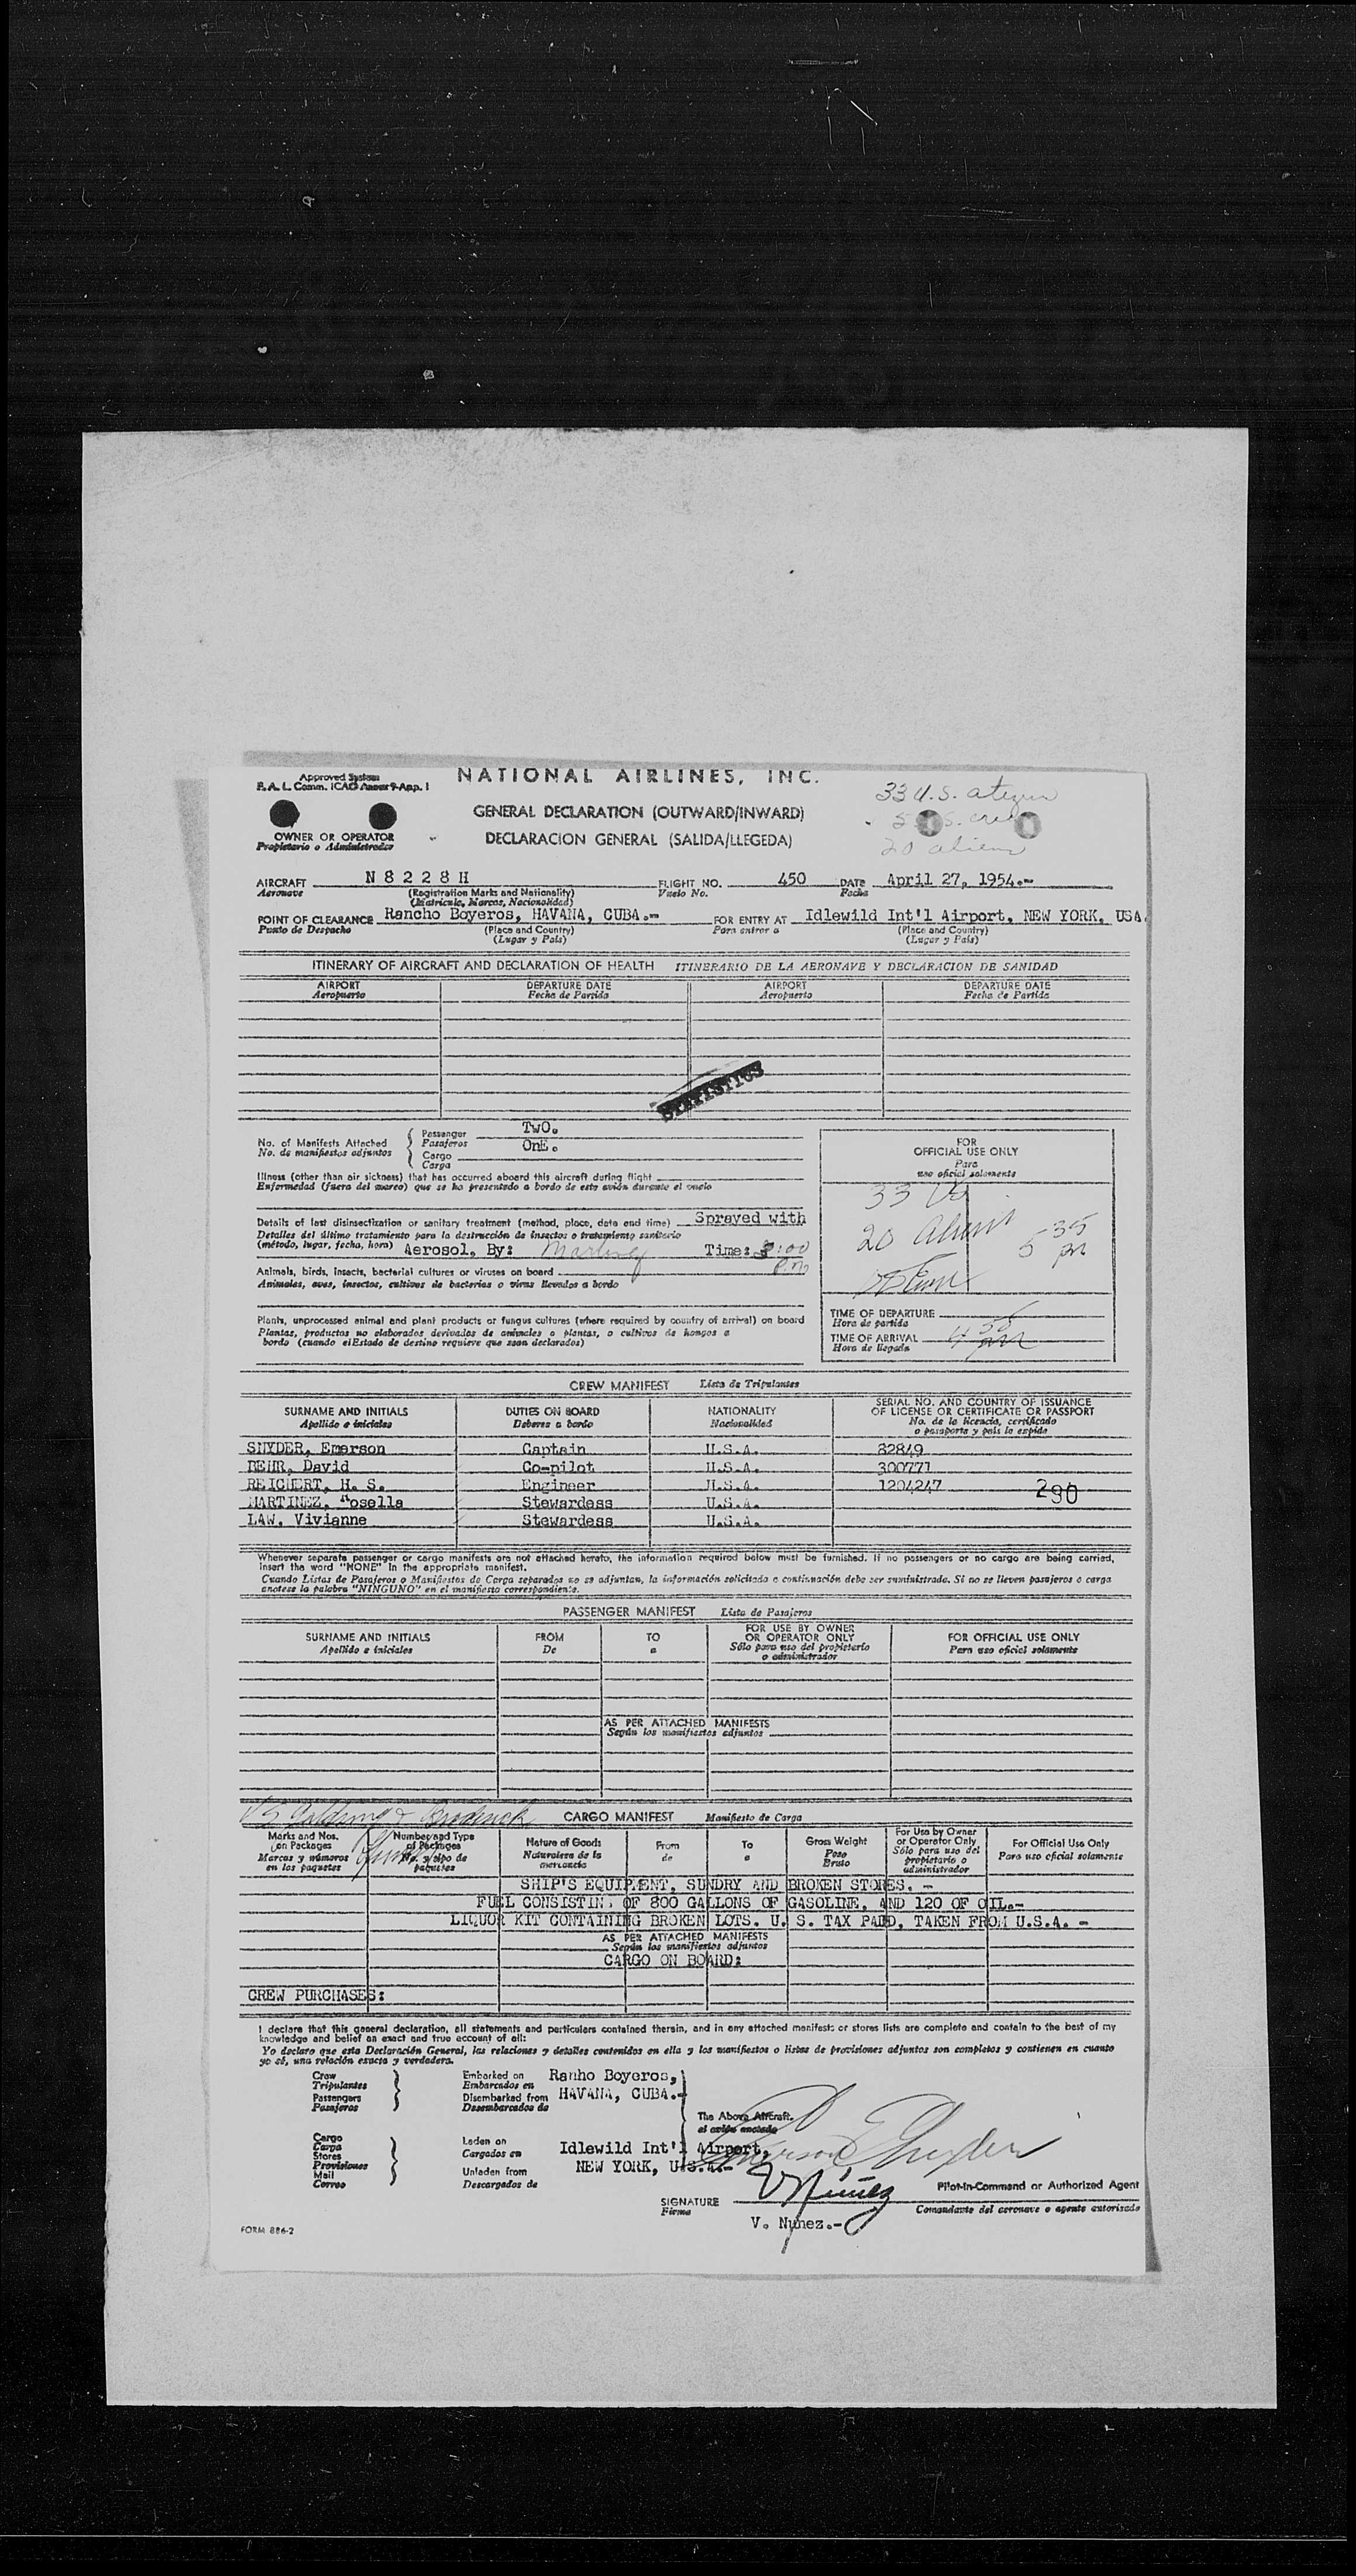 Approved System
F. A. L. Comm. ICAO Annex 9-App. 1
NATIONAL AIRLINES, INC.
GENERAL DECLARATION (OUTWARD/INWARD)
DECLARACION GENERAL (SALIDA/LLEGEDA)
33 U.S.
20 aliens
OWNER OR OPERATOR
Propietario o Administrador
AIRCRAFT N 8 2 2 8 H FLIGHT NO. 450 DATE April 27, 1954.-
Aeronave (Registration Marks and Nationality) Vuelo No. Fecha
(Matricula, Marcas, Nacionalidad)
POINT OF CLEARANCE Rancho Boyeros, HAVANA, CUBA.- FOR ENTRY AT Idlewild Int'l Airport, NEW YORK, USA.
Punto de Despacho (Place and Country) Para entrar a (Place and Country)
(Lugar y País) (Lugar y País)
ITINERARY OF AIRCRAFT AND DECLARATION OF HEALTH ITINERARIO DE LA AERONAVE Y DECLARACION DE SANIDAD
AIRPORT DEPARTURE DATE AIRPORT DEPARTURE DATE
Aeropuerto Fecha de Partida Aeropuerto Fecha de Partida
STATISTICS
No. of Manifests Attached Passenger TwO.
No. de manifiestos adjuntos Pasajeros OnE.
Cargo
Carga
Illness (other than air sickness) that has occurred aboard this aircraft during flight
Enfermedad (fuera del mareo) que se ha presentado a bordo de este avión durante el vuelo
Details of last disinsectization or sanitary treatment (method, place, date end time) Sprayed with
Detalles del último tratamiento para la destrucción de insectos o tratamiento sanitario
(método, lugar, fecha, hora) Aerosol, By: Time:
Animals, birds, insects, bacterial cultures or viruses on board
Animales, aves, insectos, cultivos de bacterias o virus llevados a bordo
Plants, unprocessed animal and plant products or fungus cultures (where required by country of arrival) on board
Plantas, productos no elaborados derivados de animales o plantas, o cultivos de hongos a
bordo (cuando elEstado de destino requiere que sean declarados)
FOR
OFFICIAL USE ONLY
Para
uso oficial solamente
33
20
5 35
pm
TIME OF DEPARTURE
Hora de partida
TIME OF ARRIVAL
Hora de llegada
CREW MANIFEST Lista de Tripulantes
SURNAME AND INITIALS DUTIES ON BOARD NATIONALITY SERIAL NO. AND COUNTRY OF ISSUANCE
OF LICENSE OR CERTIFICATE OR PASSPORT
Apellido e iniciales Deberes a bordo Nacionalidad No. de la licencia, certificado
o pasaporte y país lo expide
SNYDER, Emerson Captain U.S.A. 82849
BEHR, David Co-pilot U.S.A. 300771
REICHERT, H. S. Engineer U.S.A. 1204247
290
MARTINEZ, Rosella Stewardess U.S.A.
LAW, Vivianne Stewardess U.S.A.
Whenever separate passenger or cargo manifests are not attached hereto, the information required below must be furnished. If no passengers or no cargo are being carried,
insert the word "NONE" in the appropriate manifest.
Cuando Listas de Pasajeros o Manifiestos de Carga separados no se adjuntan, la información solicitada a continuación debe ser suministrada. Si no se lleven pasajeros o carga
anotese la palabra "NINGUNO" en el manifiesto correspondiente.
PASSENGER MANIFEST Lista de Pasajeros
SURNAME AND INITIALS FROM TO FOR USE BY OWNER FOR OFFICIAL USE ONLY
OR OPERATOR ONLY
Apellido e iniciales De a Sólo para uso del propietario Para uso oficial solamente
o administrador
AS PER ATTACHED MANIFESTS
Según los manifiestos adjuntos
CARGO MANIFEST Manifiesto de Carga
Marks and Nos. Number and Type Nature of Goods From To Gross Weight For Use by Owner For Official Use Only
on Packages of Packages or Operator Only
Marcas y números No. y tipo de Naturaleza de la de a Peso Sólo para uso del Para uso oficial solamente
en los paquetes paquetes mercancía Bruto propietario o
administrador
SHIP'S EQUIPMENT, SUNDRY AND BROKEN STORES. -
FUEL CONSISTING OF 800 GALLONS OF GASOLINE, AND 120 OF OIL.-
LIQUOR KIT CONTAINING BROKEN LOTS. U. S. TAX PAID, TAKEN FROM U.S.A. -
AS PER ATTACHED MANIFESTS
Según los manifiestos adjuntos
CARGO ON BOARD:
CREW PURCHASES:
I declare that this general declaration, all statements and particulars contained therein, and in any attached manifests or stores lists are complete and contain to the best of my
knowledge and belief an exact and true account of all:
Yo declaro que esta Declaración General, las relaciones y detalles contenidos en ella y los manifiestos o listas de provisiones adjuntos son completos y contienen en cuanto
yo sé, una relación exacta y verdadera.
Crew Embarked on Ranho Boyeros,
Tripulantes Embarcados en
Passengers Disembarked from HAVANA, CUBA.-
Pasajeros Desembarcados de
The Above Aircraft.
el avión anotado
Cargo
Carga Laden on Idlewild Int'l Airport,
Stores Cargados en
Provisiones NEW YORK, U.S.A.-
Mail Unladen from
Correo Descargados de
Emerson Snyder
Pilot-in-Command or Authorized Agent
SIGNATURE V Núñez
Firma Comandante del aeronave o agente autorizado
V. Nuñez.-
FORM 886-2